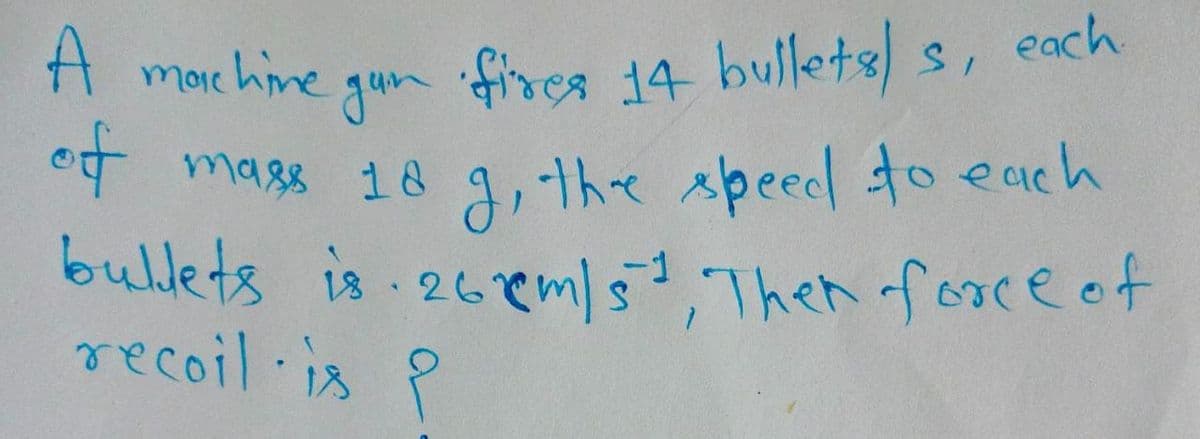 A machine gun fires 14 bullets/s, each
of mass 18 g, the speed to each
bullets is . 26 cm/s⁻¹, Then force of
recoil is ?